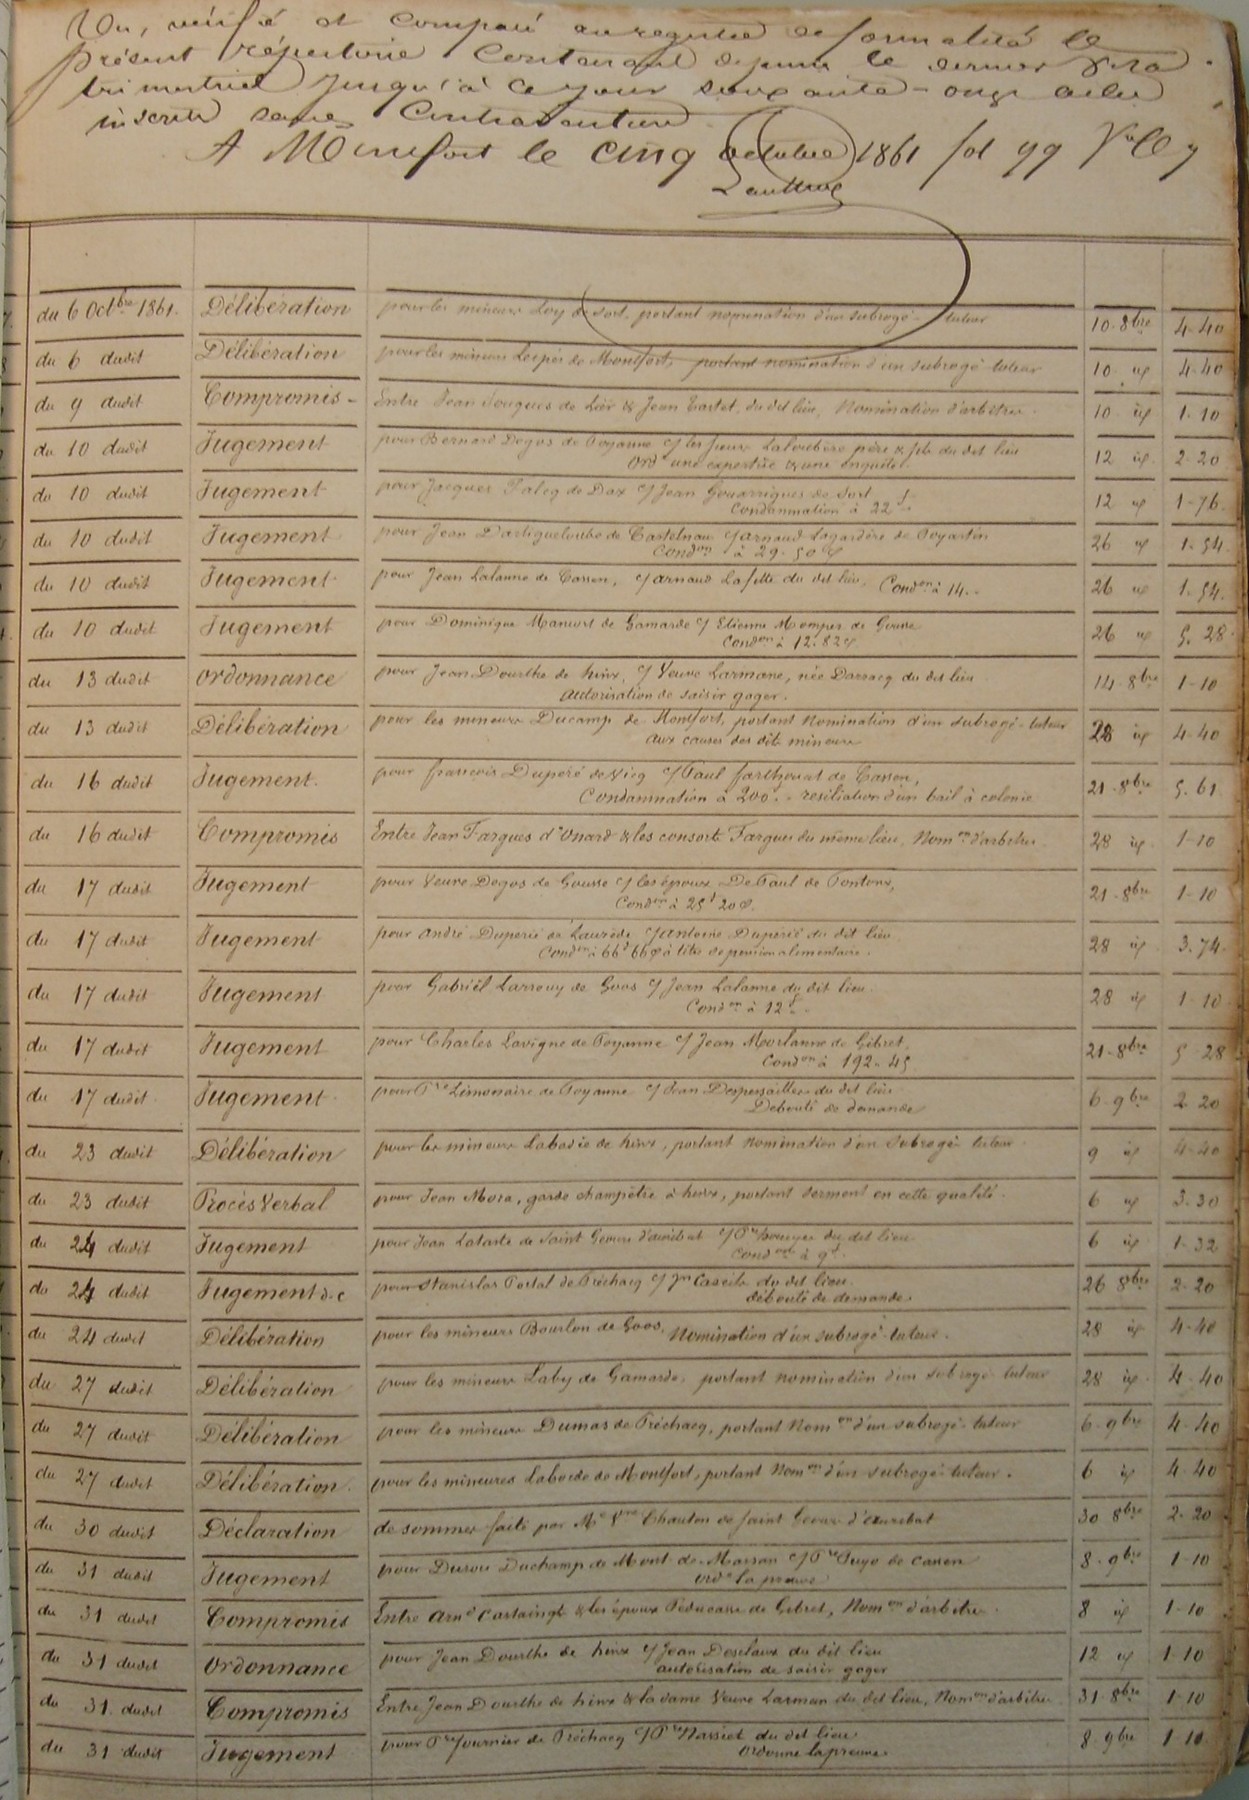 Vu, vérifié et comparé au registre de formalité le
présent répertoire Contenant depuis le dernier Visa
trimestriel jusqu'à ce jour soixante-onze actes
inscrits sans Contravention
A Montfort le cinq octobre 1861 fol 99 Vo Co 7
du 6 Octbre 1861. Délibération pour les mineurs Loby de Sort, portant nomination d'un subrogé-tuteur 10-8bre 4-40
du 6 dudit Délibération pour les mineurs Lespés de Montfort, portant nomination d'un subrogé-tuteur 10 id 4-40
du 9 dudit Compromis- Entre Jean de Lier & Jean Tastet, du dit lieu, Nomination d'arbitres. 10 id 1-10
du 10 dudit Jugement pour Bernard Degos de Poyanne c/ les sieurs Laloubère père & fils du dit lieu
Ord une expertise & une enquête. 12 id 2 20
du 10 dudit Jugement pour Jacques Falcq de Dax c/ Jean Gouarrigues de Sort
Condamnation à 22 f. 12 id 1-76
du 10 dudit Jugement pour Jean Dartiguelonbe de Castelnau c/ arnaud Lagardère de Poyartin
Condon à 29-50 c 26 id 1-54
du 10 dudit Jugement pour Jean Lalanne de Cassen, c/ arnaud Lafitte du dit lieu, Condon à 14. 26 id 1-54.
du 10 dudit Jugement pour Dominique de Gamarde c/ Etienne de Gousse
Condon à 12.82 c 26 id 5.28
du 13 dudit ordonnance pour Jean Dourthe de hinx, c/ Veuve Larmane, née Darracq du dit lieu
autorisation de saisir gager. 14-8bre 1-10
du 13 dudit Délibération pour les mineurs Ducamp de Montfort, portant nomination d'un subrogé-tuteur
aux causes des dits mineurs 28 id 4-40
du 16 dudit Jugement. pour françois Dupéré de Vicq c/ Paul farthouat de Cassen,
Condamnation à 200 f. - resiliation d'un bail à colonie 21-8bre 5.61
du 16 dudit Compromis Entre Jean Fargues d'Onard & les consorts Fargues du même lieu, Nomon d'arbitres. 28 id 1-10
du 17 dudit Jugement pour Veuve Degos de Gousse c/ les époux De Paul de Pontonx,
Condon à 25 f 20 c. 21-8bre 1-10
du 17 dudit Jugement pour andré Duperié de Laurède c/ antoine Duperié du dit lieu.
Condon à 66 f 66 c à titre de pension alimentaire. 28 id 3.74
du 17 dudit Jugement pour Gabriël Larrouy de Goos c/ Jean Lalanne du dit lieu.
Condon à 12 f. 28 id 1-10
du 17 dudit Jugement pour Charles Lavigne de Poyanne c/ Jean Moorlanne de Gibret,
Condon à 192-45 21-8bre 5 28
du 17 dudit Jugement pour Pre Limonaire de Poyanne c/ Jean du dit lieu
Débouté de demande 6-9bre 2 20
du 23 dudit Délibération pour les mineurs Labadie de hinx, portant nomination d'un subrogé tuteur. 9 id 4-40
du 23 dudit Procès Verbal pour Jean Mora, garde champêtre à hinx, portant serment en cette qualité. 6 id 3-30
du 24 dudit Jugement pour Jean Lataste de Saint Geours d'auribat c/ Pre du dit lieu
Condon à 9 f. 6 id 1-32
du 24 dudit Jugement d.c pour Stanislas Portal de Préchacq c/ Jn Caseits du dit lieu
débouté de demande. 26 8bre 2-20
du 24 dudit Délibération pour les mineurs Bourlon de Goos, Nomination d'un subrogé-tuteur. 28 id 4-40
du 27 dudit Délibération pour les mineurs Laby de Gamarde, portant nomination d'un subrogé-tuteur 28 id 4-40
du 27 dudit Délibération pour les mineurs Dumas de Préchacq, portant Nomon d'un subrogé-tuteur 6-9bre 4-40
du 27 dudit Délibération. pour les mineures Laborde de Montfort, portant Nomon d'un subrogé-tuteur. 6 id 4-40
du 30 dudit Déclaration de sommes faite par Me Chauton de Saint Geours d'Aurebat 30 8bre 2-20
du 31 dudit Jugement pour Duchamp de Mont de-Marsan c/ Pre Puyo de cassen
ord. la preuve 8-9bre 1-10
du 31 dudit Compromis Entre arnd Castaingts & les époux Péducasse de Gibret, Nomon d'arbitre. 8 id 1-10
du 31 dudit ordonnance pour Jean Dourthe de hinx c/ Jean Desclaux du dit lieu
autorisation de saisir gager 12 id 1 10
du 31 dudit Compromis Entre Jean Dourthe de hinx & la dame Veuve Larman du dit lieu, Nomon d'arbitre 31-8bre 1-10
du 31 dudit Jugement pour Pre fournier de Préchacq c/ Pre Massiet du dit lieu
Ordonne la preuve 8-9bre 1 10